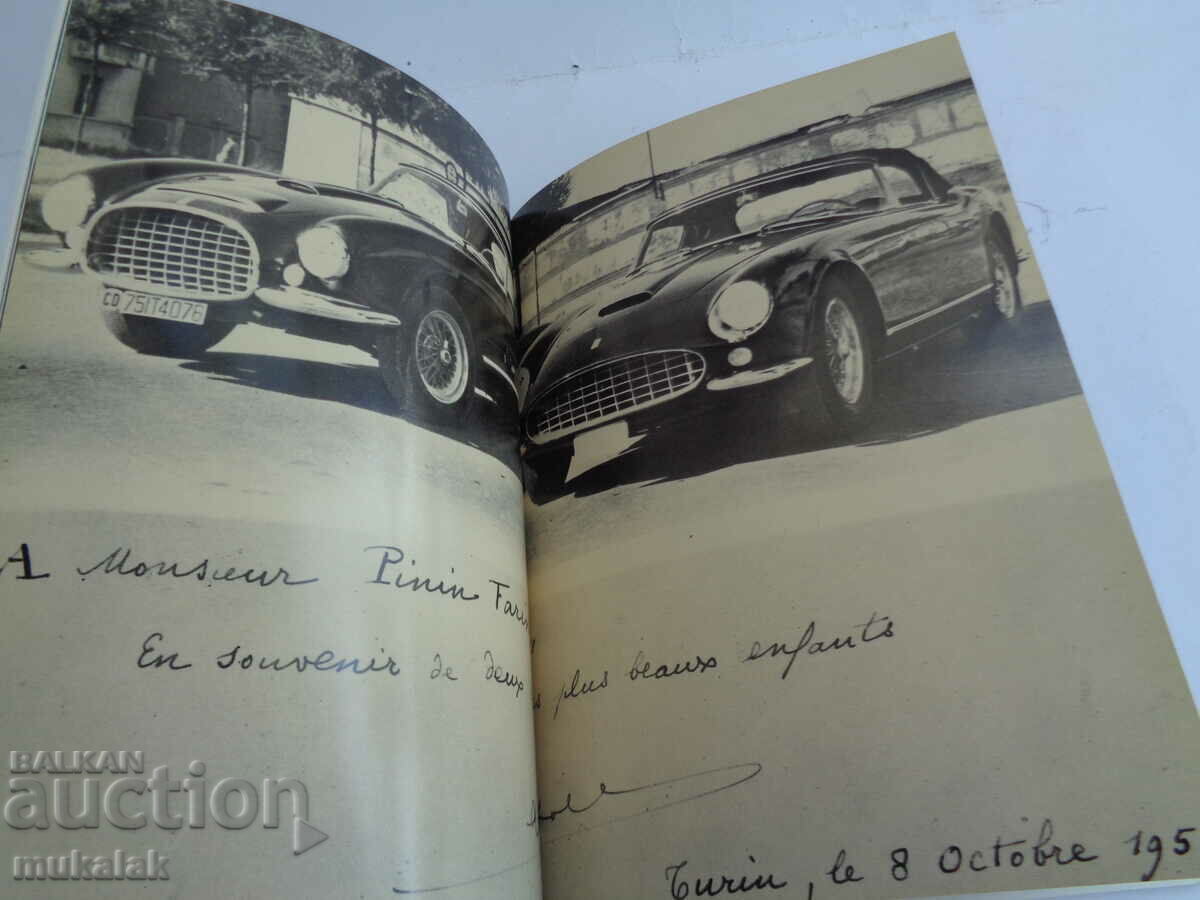 CD 75IT4076
A Monsieur Pinin Farin
En souvenir de deux s plus beaux enfants
Turin, le 8 Octobre 195
BALKAN
auction
mukalak